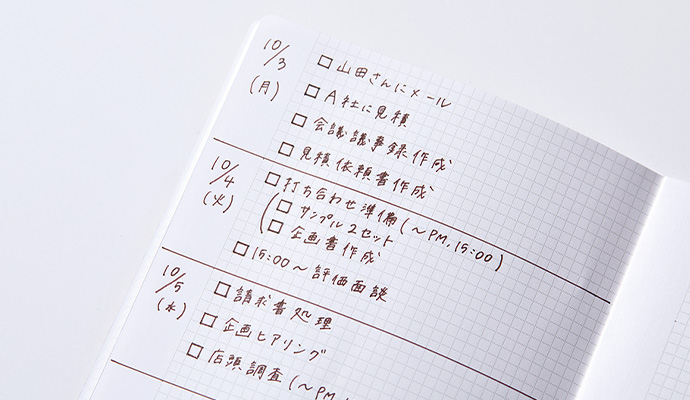 10/3
(月)
□ 山田さんにメール
□ A社に見積
□ 会議議事録作成
□ 見積依頼書作成
10/4
(火)
□ 打ち合わせ準備(〜PM.15:00)
□ サンプル2セット
□ 企画書作成
□ 15:00〜評価面談
10/5
(水)
□ 請求書処理
□ 企画ヒアリング
□ 店頭調査(〜PM.